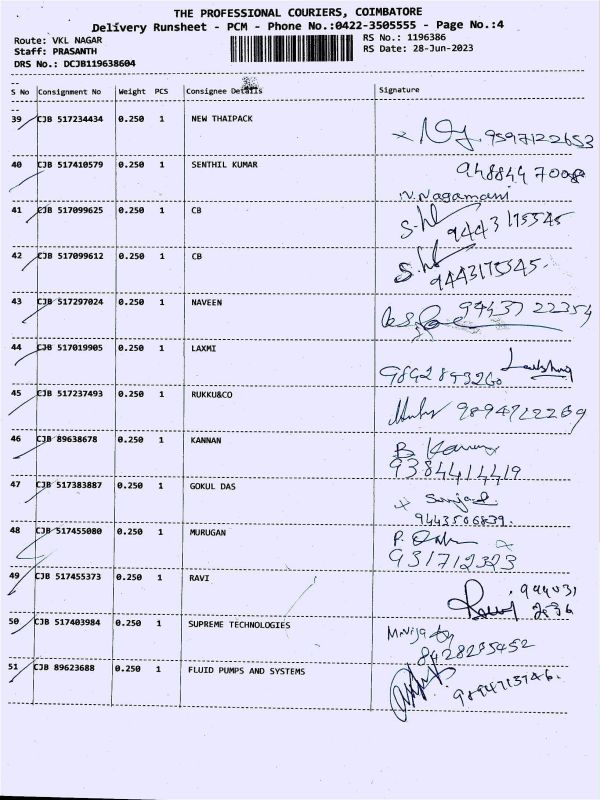 THE PROFESSIONAL COURIERS, COIMBATORE
Delivery Runsheet - PCM - Phone No.:0422-3505555 - Page No.:4
Route: VKL NAGAR RS No.: 1196386
Staff: PRASANTH RS Date: 28-Jun-2023
DRS No.: DCJB119638604
S No Consignment No Weight PCS Consignee Details Signature
39 CJB 517234434 0.250 1 NEW THAIPACK 9597122653
40 CJB 517410579 0.250 1 SENTHIL KUMAR
N. Nagamani
41 CJB 517099625 0.250 1 CB 9443175545
42 CJB 517099612 0.250 1 CB 9443175545
43 CJB 517297024 0.250 1 NAVEEN 94437 22354
44 CJB 517019905 0.250 1 LAXMI
45 CJB 517237493 0.250 1 RUKKU&CO
46 CJB 89638678 0.250 1 KANNAN
9384414419
47 CJB 517383887 0.250 1 GOKUL DAS
9443506839
48 CJB 517455080 0.250 1 MURUGAN
931712323
49 CJB 517455373 0.250 1 RAVI
50 CJB 517403984 0.250 1 SUPREME TECHNOLOGIES
8428235452
51 CJB 89623688 0.250 1 FLUID PUMPS AND SYSTEMS 9894713746.